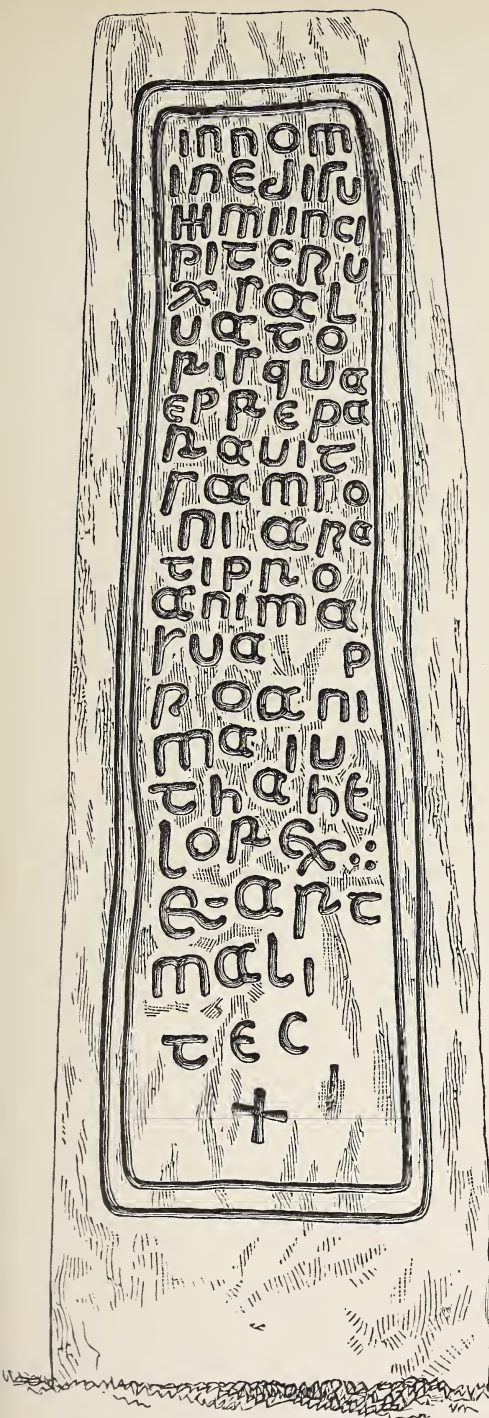 innom
inedisu
mmiinci
pitcru
x sal
uato
risqua
eprepa
rauit
samso
ni apa
ti pro
anima
sua p
ro ani
ma iu
thahe
lo rex::
e-art
mali
tec
+